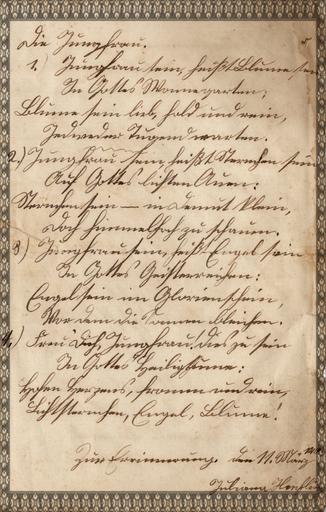 Die Jungfrau.
1. Jungfrau sein, heißt Blume sein
In Gottes Wonnegarten;
Blume sein lieb, hold und rein,
Jedweder Tugend warten.
2.) Jungfrau sein, heißt Sternchen sein
Auf Gottes lichten Auen:
Sternchen sein — in Demut klein,
Doch himmelhoch zu schauen.
3) Jungfrau sein, heißt Engel sein
In Gottes Geisterreichen:
Engel sein im Glorienschein,
Vor dem die Sonnen bleichen.
4.) Freu' Dich Jungfrau! dies zu sein
In Gottes Heiligtume:
Hohen Herzens, fromm und rein,
Lichtsternchen, Engel, Blume!
Zur Erinnerung. den 11. März
Juliana